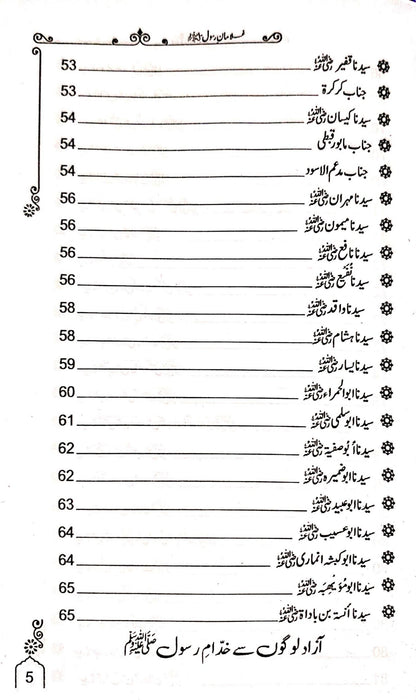 غلامان رسول ﷺ
سیدنا قفیز رضی اللہ عنہ 53
جناب کرکرۃ 53
سیدنا کیسان رضی اللہ عنہ 54
جناب مابور قبطی 54
جناب مدعم الاسود 54
سیدنا مہران رضی اللہ عنہ 56
سیدنا میمون رضی اللہ عنہ 56
سیدنا نافع رضی اللہ عنہ 56
سیدنا نُفَیع رضی اللہ عنہ 56
سیدنا واقد رضی اللہ عنہ 58
سیدنا ہشام رضی اللہ عنہ 58
سیدنا یسار رضی اللہ عنہ 59
سیدنا ابوالحمراء رضی اللہ عنہ 60
سیدنا ابوسلمی رضی اللہ عنہ 61
سیدنا أبوصفیۃ رضی اللہ عنہ 62
سیدنا ابوضمیرہ رضی اللہ عنہ 62
سیدنا ابوعبید رضی اللہ عنہ 63
سیدنا ابوعسیب رضی اللہ عنہ 64
سیدنا ابوکبشہ انماری رضی اللہ عنہ 64
سیدنا ابومُوَیْھبَہ رضی اللہ عنہ 65
سیدنا أنسۃ بن باداۃ رضی اللہ عنہ 65
آزاد لوگوں سے خدّامِ رسول ﷺ
5